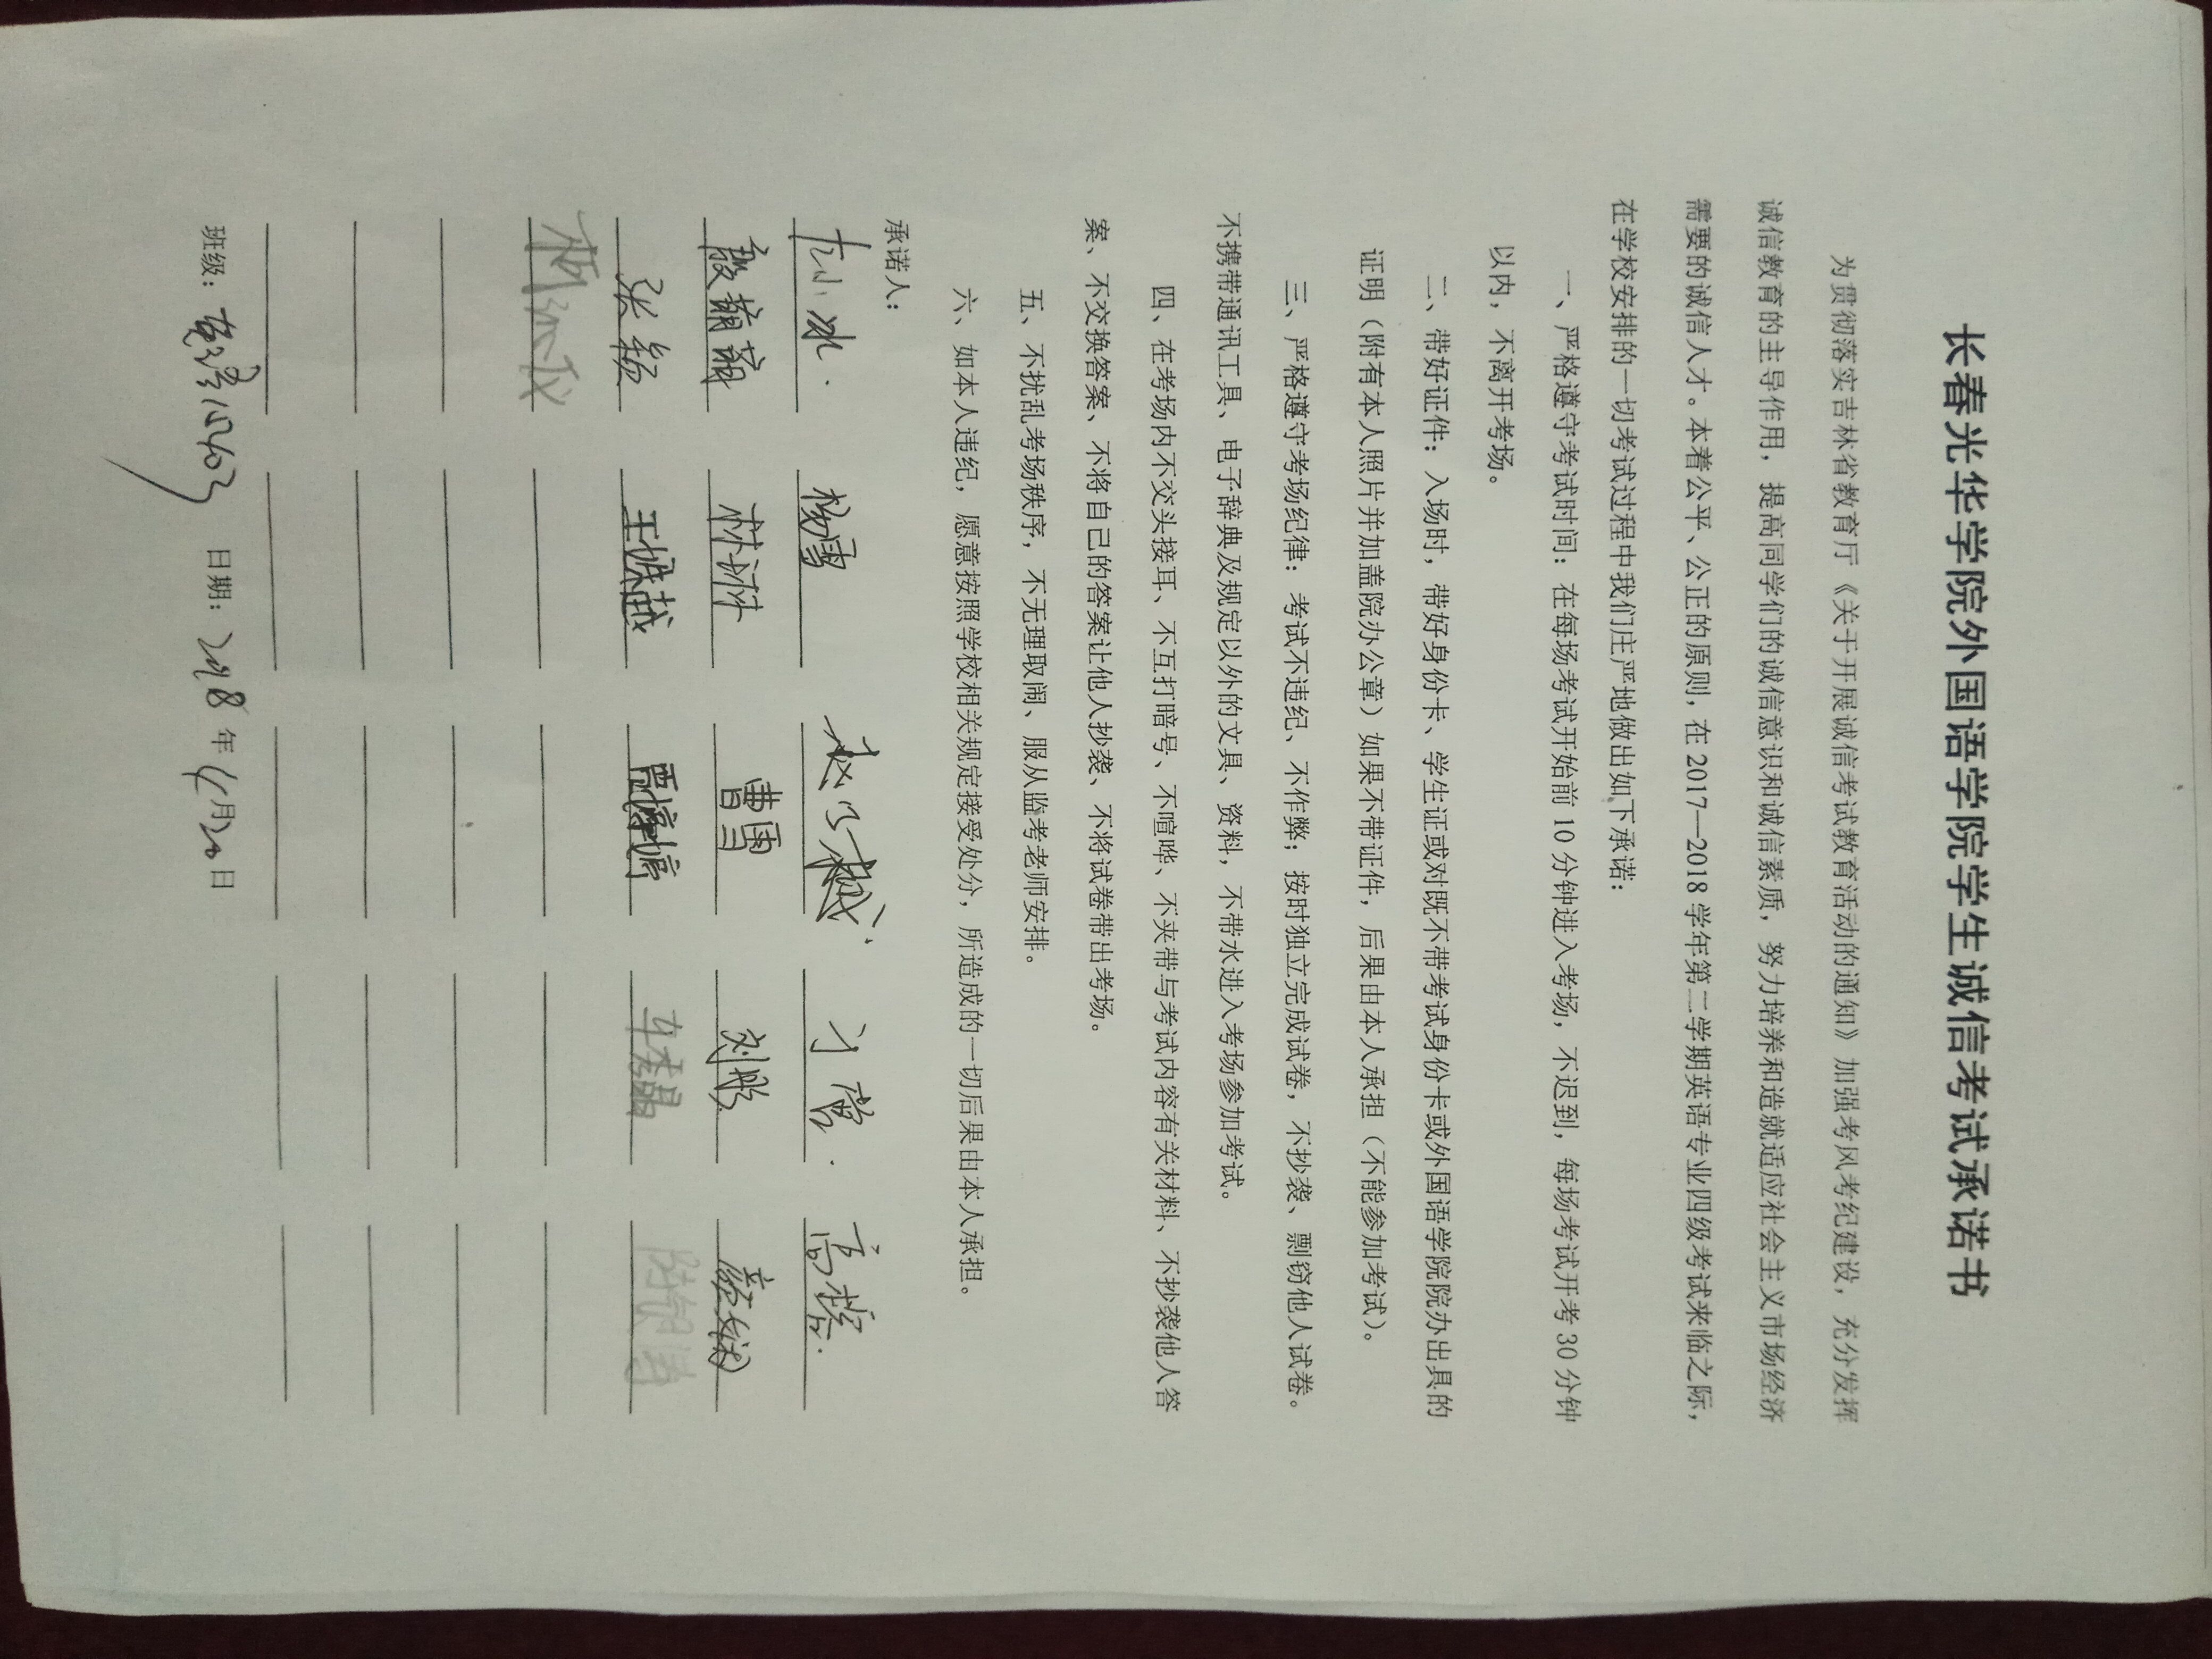 长春光华学院外国语学院学生诚信考试承诺书
为贯彻落实吉林省教育厅《关于开展诚信考试教育活动的通知》加强考风考纪建设，充分发挥
诚信教育的主导作用，提高同学们的诚信意识和诚信素质，努力培养和造就适应社会主义市场经济
需要的诚信人才。本着公平、公正的原则，在 2017—2018 学年第二学期英语专业四级考试来临之际，
在学校安排的一切考试过程中我们庄严地做出如下承诺：
一、严格遵守考试时间：在每场考试开始前 10 分钟进入考场，不迟到，每场考试开考 30 分钟
以内，不离开考场。
二、带好证件：入场时，带好身份卡、学生证或对既不带考试身份卡或外国语学院院办出具的
证明（附有本人照片并加盖院办公章）如果不带证件，后果由本人承担（不能参加考试）。
三、严格遵守考场纪律：考试不违纪、不作弊；按时独立完成试卷，不抄袭、剽窃他人试卷。
不携带通讯工具、电子辞典及规定以外的文具、资料，不带水进入考场参加考试。
四、在考场内不交头接耳、不互打暗号、不喧哗、不夹带与考试内容有关材料、不抄袭他人答
案、不交换答案、不将自己的答案让他人抄袭、不将试卷带出考场。
五、不扰乱考场秩序，不无理取闹、服从监考老师安排。
六、如本人违纪，愿意按照学校相关规定接受处分，所造成的一切后果由本人承担。
承诺人：
杨雪
曹雪 刘彤
张杨 王姝越
班级： 日期：2018 年 4 月 20 日